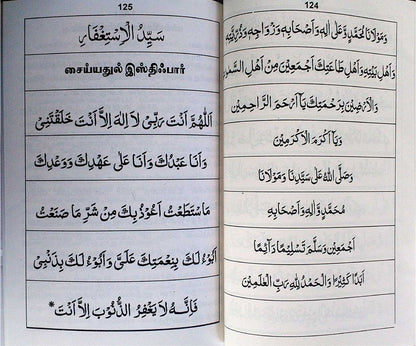 124
وَمَوْلَانَا مُحَمَّدٍ وَّعَلٰى اٰلِهٖ وَاَصْحَابِهٖ وَزْوَاجِهٖ وَذُرِّيَّتِهٖ
وَاَهْلِ بَيْتِهٖ وَاَهْلِ طَاعَتِكَ اَجْمَعِيْنَ مِنْ اَهْلِ السَّمٰوٰتِ
وَالْاَرْضِيْنَ بِرَحْمَتِكَ يَا اَرْحَمَ الرَّاحِمِيْنَ
وَيَا اَكْرَمَ الْاَكْرَمِيْنَ
وَصَلَّى اللهُ عَلٰى سَيِّدِنَا وَمَوْلَانَا
مُحَمَّدٍ وَّاٰلِهٖ وَاَصْحَابِهٖ
اَجْمَعِيْنَ وَسَلَّمَ تَسْلِيْمًا دَآئِمًا
اَبَدًا كَثِيْرًا وَالْحَمْدُ لِلّٰهِ رَبِّ الْعٰلَمِيْنَ
125
سَيِّدُ الْاِسْتِغْفَارِ
சைய்யதுல் இஸ்திஃபார்
اَللّٰهُمَّ اَنْتَ رَبِّيْ لَا اِلٰهَ اِلَّا اَنْتَ خَلَقْتَنِيْ
وَاَنَا عَبْدُكَ وَاَنَا عَلٰى عَهْدِكَ وَوَعْدِكَ
مَا سْتَطَعْتُ اَعُوْذُ بِكَ مِنْ شَرِّ مَا صَنَعْتُ
اَبُوْءُ لَكَ بِنِعْمَتِكَ عَلَيَّ وَاَبُوْءُ لَكَ بِذَنْبِيْ
فَاِنَّهُ لَا يَغْفِرُ الذُّنُوْبَ اِلَّا اَنْتَ*